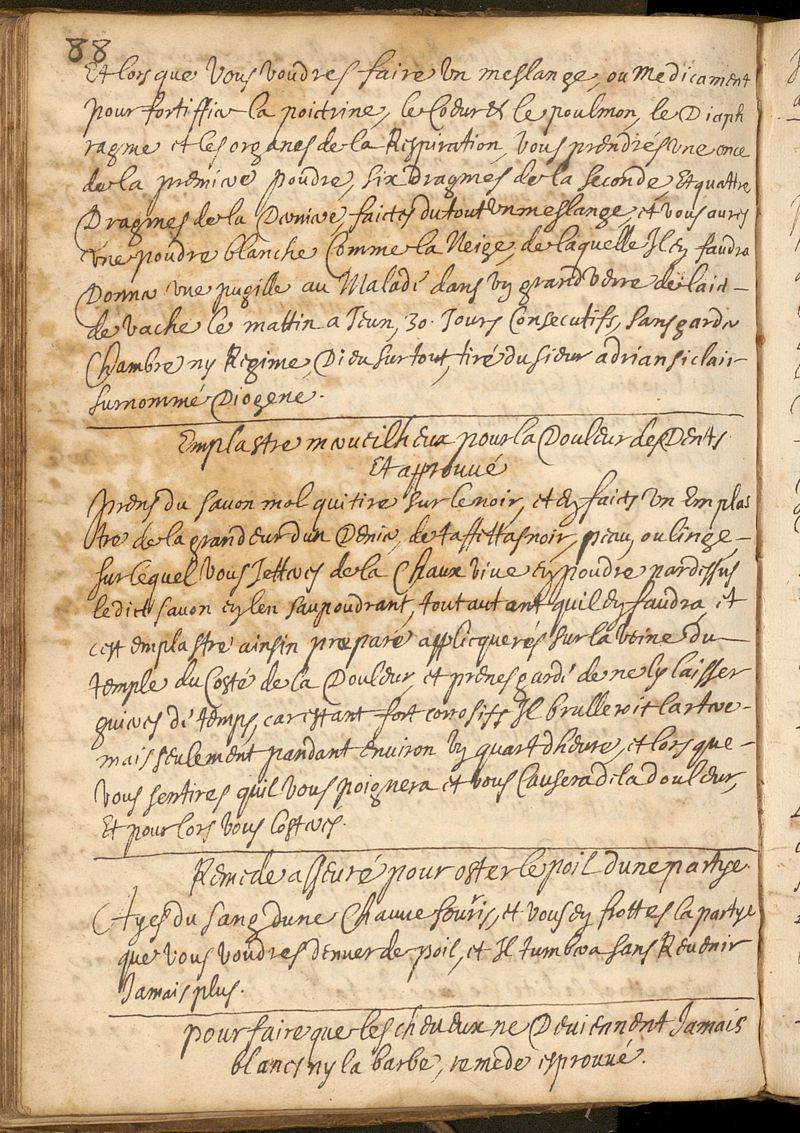 88
Et lors que Vous voudres faire vn meslange, ou Medicament
pour fortiffier la poictrine, le Coeur & le poulmon, le Diaph
ragme et les organes de la Respiration, vous prendrés vne once
de la premiere poudre, six Dragmes de la seconde, Et quattre
Dragmes de la Derniere, faictes du tout vn meslange, et vous aures
vne poudre blanche Comme la Neige, de laquelle Il ey faudra
Donner vne pugille au Malade dans vy grand verre de laict –
de vache le mattin a Jeun, 30. Jours Consecutifs, sans garder
Chambre ny Regime, Dieu sur tout, tiré du sieur adrian siclair
surnommé Diogene.
Emplastre merveilheux pour la Douleur des Dents
Et approuué
prens du savon mol qui tire sur le noir, et ey faictes vn Emplas
tre de la grandeur dun Denier, de taffettas noir, peau, ou linge –
sur lequel vous Jetteres de la Chaux viue ey poudre par dessus
le dict savon ey len saupoudrant, tout autant quil ey faudra, et
cest emplastre ainsin preparé applicquerés sur la veine du –
temple du Costé de la Douleur, et prenes garde de ne ly laisser
guieres de temps, car estant fort corrosiff Il brulleroit lartere –
mais seulement pandant environ vy quart dheure, et lors que –
vous sentires quil vous poignera et vous Causera de la douleur,
Et pour lors vous losteres.
Remede asseuré pour oster le poil dune partye.
Ayes du sang dune Chauue souris, et vous ey frottes la partye
que vous voudres denuer de poil, et Il tumbera sans Reuenir
Jamais plus.
pour faire que les cheueux ne Deuiennent Jamais
blancs ny la barbe, remede esprouué.